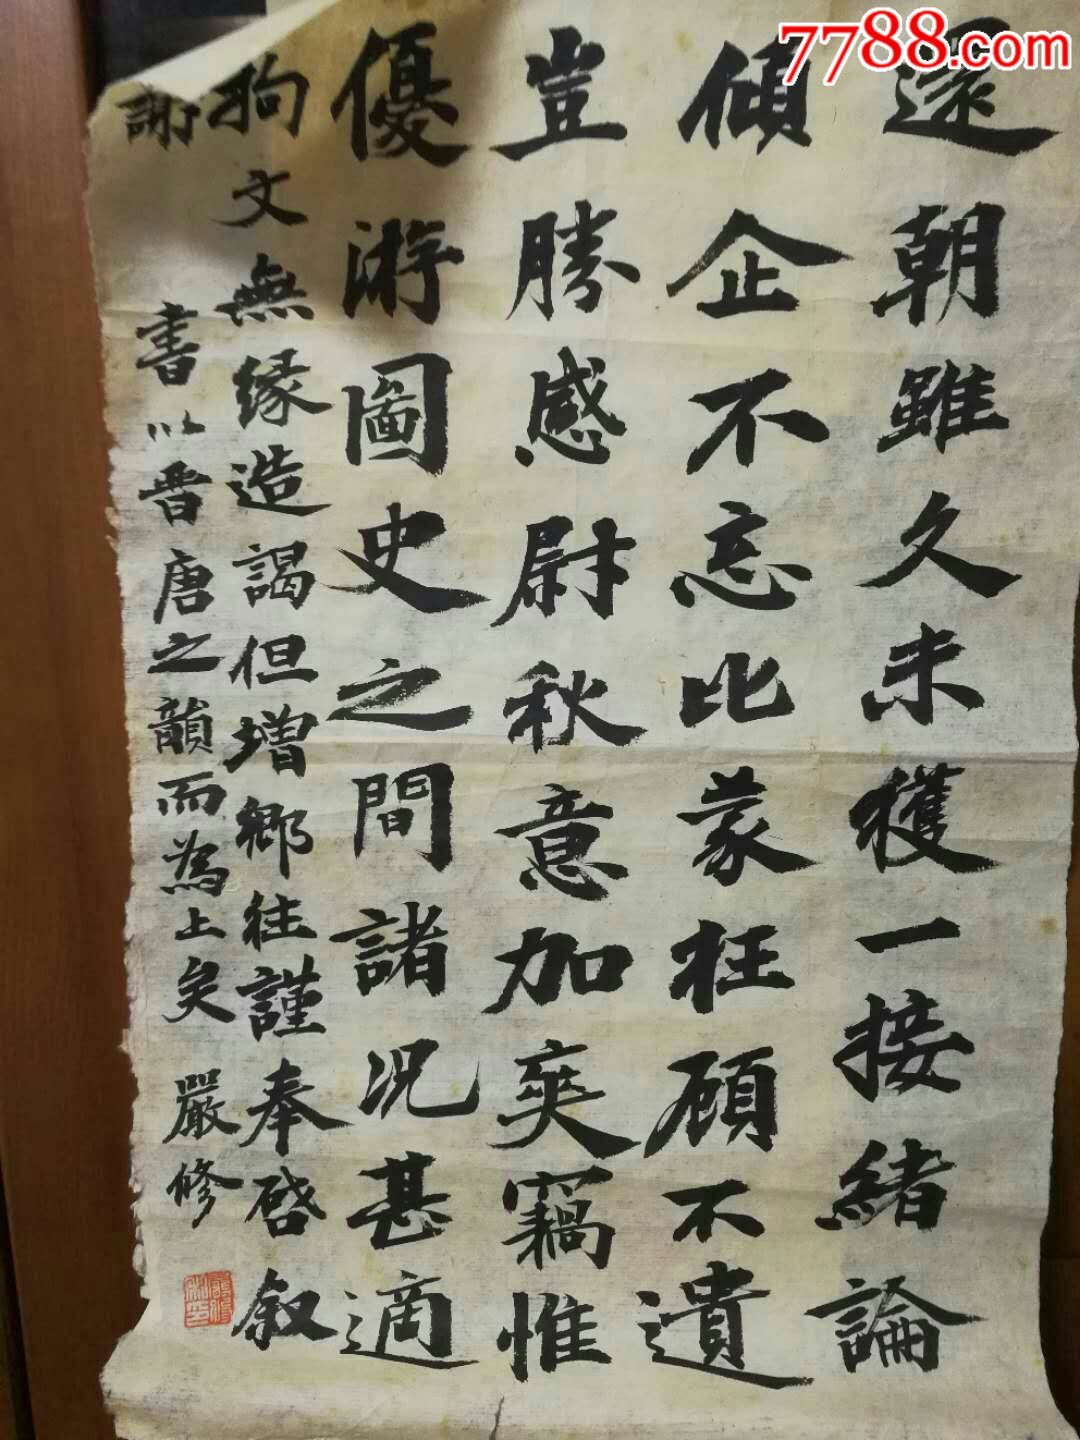 7788.com
還朝雖久未獲一接緒論
傾企不忘比蒙枉顧不遺
豈勝感尉秋意加爽竊惟
優游圖史之間諸況甚適
拘文無緣造謁但增鄉往謹奉啓叙
謝
書以晋唐之韻而為上矣 嚴修